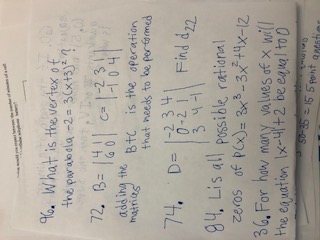 would you expect between the number of minutes of a cell
cellular telephone battery?
96. What is the vertex of
the parabola -2 = 3(x+3)² ?
72. B= |4 1| C= |-2 3 1|
|6 0| |-1 0 4|
adding the
matrices B+C is the operation
that needs to be performed
74. D= |-2 3 4|
|0 -2 1| Find d22
|3 4 -1|
84. Lis all possible rational
zeros of P(x)= 3x³-3x²+4x-12
36. For how many values of x will
the equation |x-4|+2 be equal to 0
50-35 = 15 5 point questions